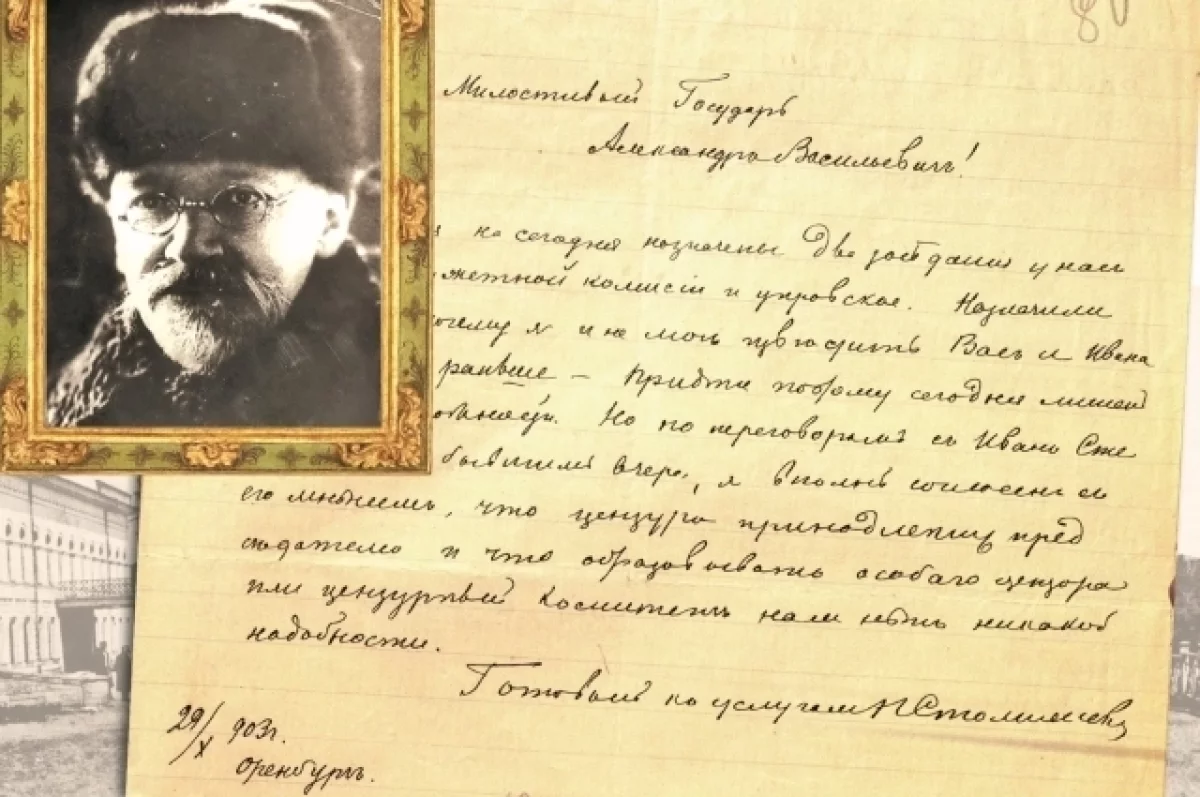 Милостивый Государь
Александръ Васильевичъ!
на сегодня назначены два засѣданія у насъ
жетной комисіи и управское. Назначили
почему я и не могъ извѣстить Васъ и Ивана
раньше – Придти поэтому сегодня лишенъ
Но по переговорамъ съ Иваномъ Сте
бывшимъ вчера, я вполнѣ согласенъ съ
его мнѣніемъ, что цензура принадлежитъ пред
сѣдателю и что образовывать особаго цензора
или цензурный Комитетъ намъ нѣтъ никакой
надобности.
Готовый къ услугамъ
29/X 903 г.
Оренбургъ.